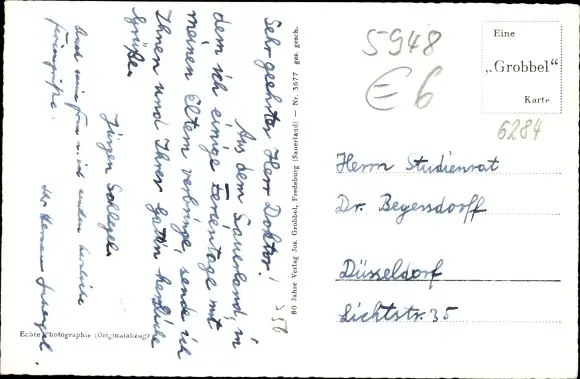 Sehr geehrter Herr Doktor!
Aus dem Sauerland, in
dem ich einige Ferientage mit
meinen Eltern verbringe, sende ich
Ihnen und Ihrer Gattin herzliche
Grüße
Jürgen Schlegel
Auch meine Frau und senden herzliche
Feriengrüße.
Ihr Hermann
5948
€6
Eine
„Grobbel“
Karte
6284
Herrn Studienrat
Dr. Begensdorff
Düsseldorf
Lichtstr. 35
80 Jahre Verlag Jos. Grobbel, Fredeburg (Sauerland) — Nr. 5677 ges. gesch.
Echte Photographie (Originalabzug)